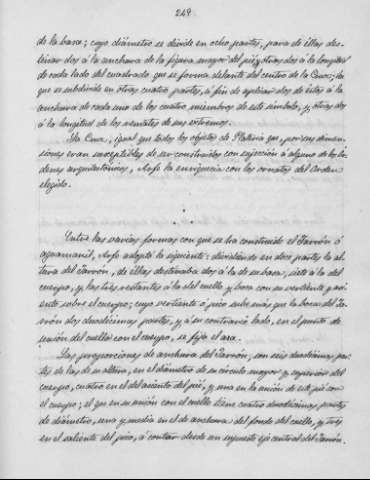 249.
de la basa; cuyo diámetro se divide en ocho partes, para de ellas des-
tinar dos á la anchura de la figura mayor del pié, y otras dos á la longitud
de cada lado del cuadrado que se forma delante del centro de la Cruz; la
que se subdivide en otras cuatro partes, á fin de aplicar dos de éstas á la
anchura de cada uno de los cuatro miembros de este símbolo, y otras dos
á la longitud de los remates de sus extremos.
La Cruz, igual que todos los objetos de Platería que, por sus dimen-
siones eran susceptibles de ser construidos con sujeción á alguno de los Ór-
denes arquitectónicos, Arfe la enriquecía con los ornatos del Orden
elegido.
Entre las varias formas con que se ha construido el Jarrón ó
aguamanil, Arfe adoptó la siguiente: dividiendo en doce partes la al-
tura del Jarrón, de ellas destinaba dos á la de su basa, siete á la del
cuerpo, y las tres restantes á la del cuello y boca con su vertiente y asi-
ento sobre el cuerpo; cuyo vertiente ó pico sube más que la boca del Ja-
rrón dos duodécimas partes, y á su contrario lado, en el punto de
unión del cuello con el cuerpo, se fija el asa.
Las proporciones de anchura del Jarrón, son seis duodécimas par-
tes de las de su altura, en el diámetro de su círculo mayor y superior del
cuerpo, cuatro en el del asiento del pié, y una en la unión de este pié con
el cuerpo; el que en su unión con el cuello tiene cuatro duodécimas partes
de diámetro, una y media en el de anchura del fondo del cuello, y tres
en el saliente del pico, á contar desde un supuesto eje central del Jarrón.